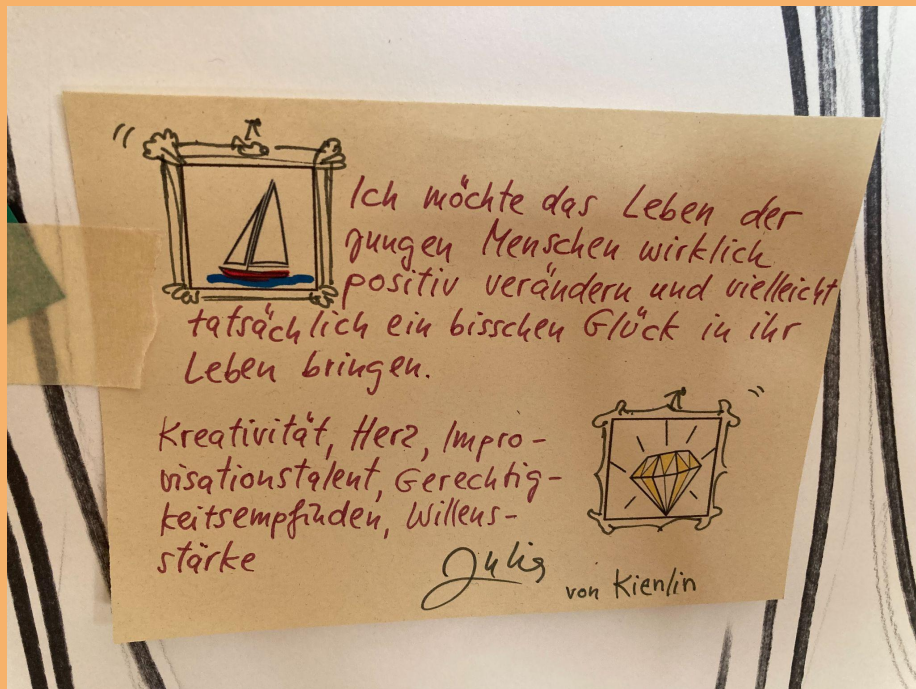 Ich möchte das Leben der
jungen Menschen wirklich
positiv verändern und vielleicht
tatsächlich ein bisschen Glück in ihr
Leben bringen.
Kreativität, Herz, Impro-
visationstalent, Gerechtig-
keitsempfinden, Willens-
stärke
Julia
von Kienlin